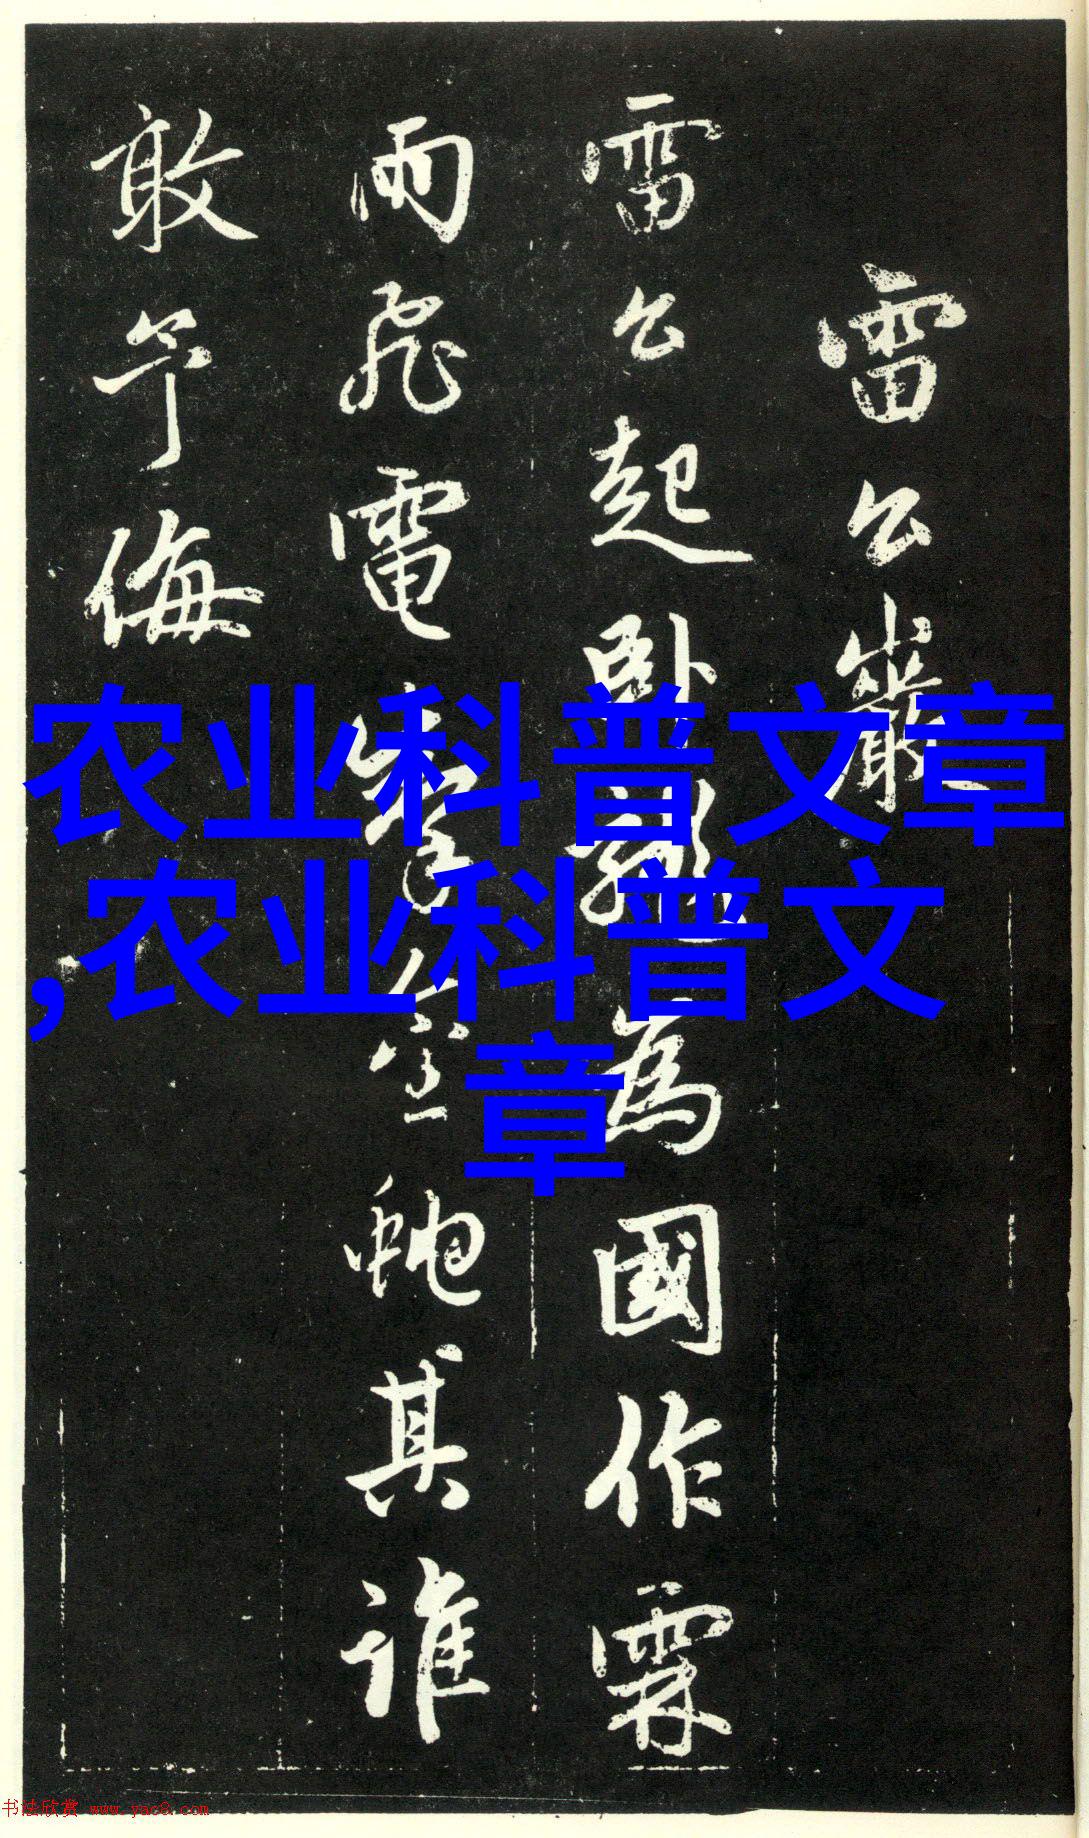 雷公巖
雷公起卧龍為國作霖
雨飛電掣金虵其誰
敢予侮
农业科普文章
,农业科普文
章
书法欣赏 www.yac8.com